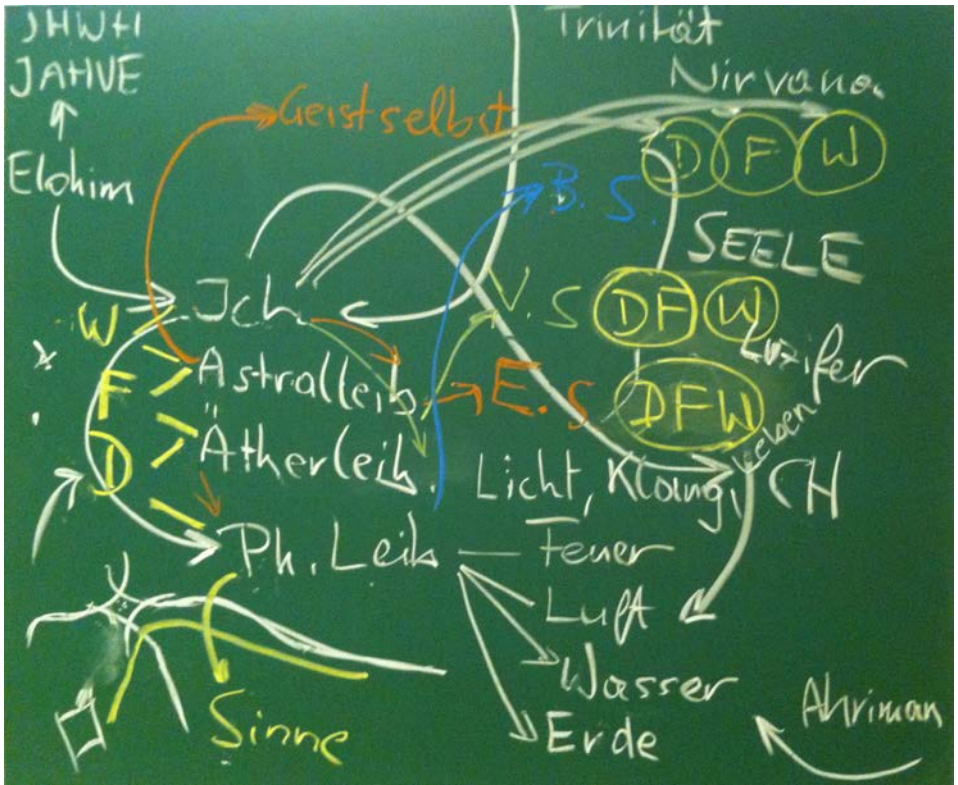 JHWH
JAHVE
Elohim
Trinität
Nirvana
Geistselbst
D F W
B. S.
SEELE
Ich
V. S
D F W
W
Luzifer
Astralleib
E. S
D F W
F
Leben
Ätherleib
Licht, Klang, CH
D
Ph. Leib — Feuer
Luft
Wasser
Erde
Sinne
Ahriman